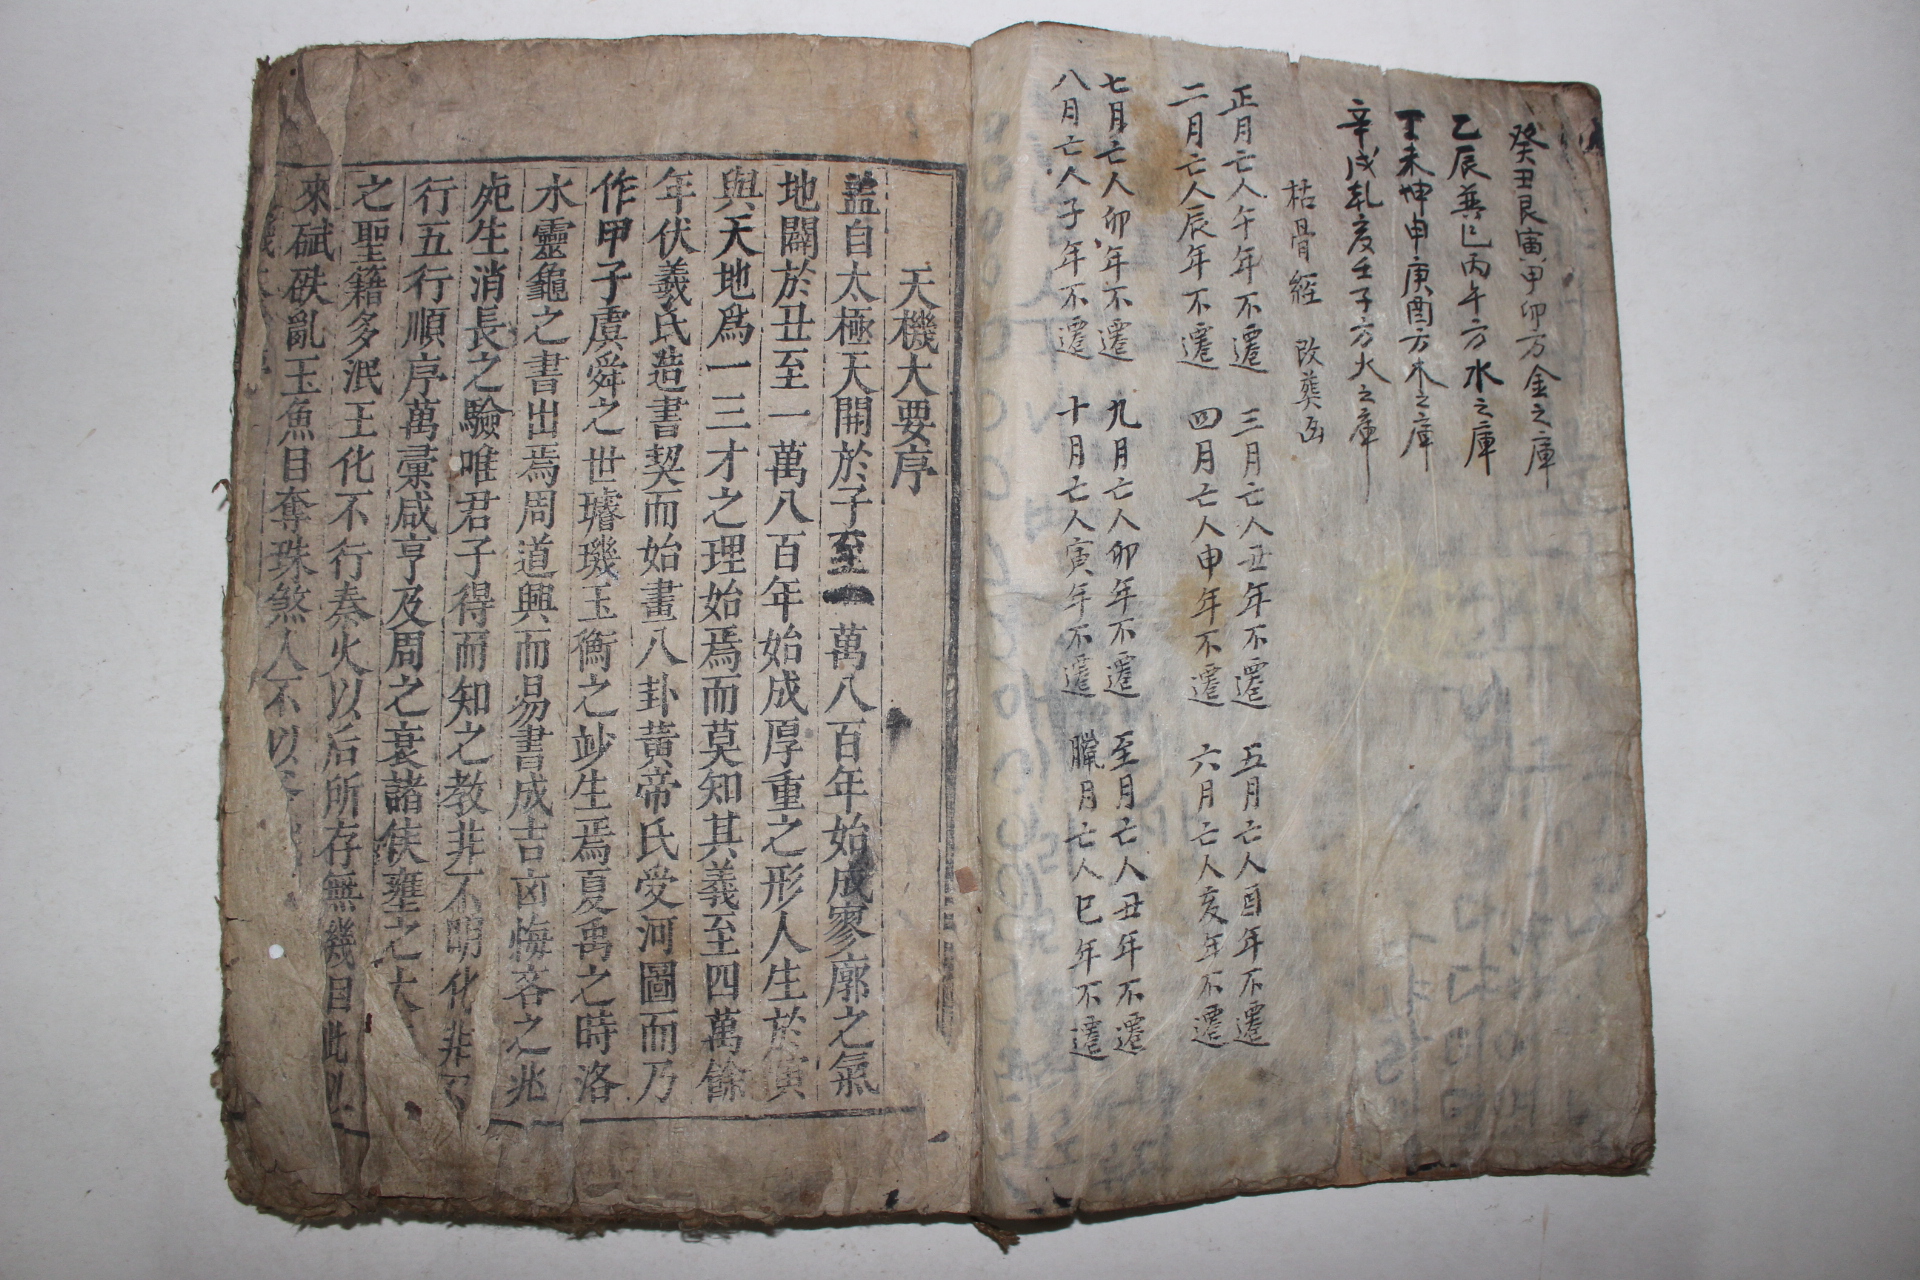 癸丑艮寅甲卯方金之庫
乙辰巽巳丙午方水之庫
丁未坤申庚酉方木之庫
辛戌乾亥壬子方火之庫
枯骨經 改葬凶
正月亡人午年不遷 三月亡人丑年不遷 五月亡人酉年不遷
二月亡人辰年不遷 四月亡人申年不遷 六月亡人亥年不遷
七月亡人卯年不遷 九月亡人卯年不遷 至月亡人丑年不遷
八月亡人子年不遷 十月亡人寅年不遷 臘月亡人巳年不遷
天機大要序
盖自太極天開於子至一萬八百年始成寥廓之氣
地闢於丑至一萬八百年始成厚重之形人生於寅
與天地爲一三才之理始焉而莫知其義至四萬餘
年伏羲氏造書契而始畫八卦黃帝氏受河圖而乃
作甲子虞舜之世璿璣玉衡之妙生焉夏禹之時洛
水靈龜之書出焉周道興而易書成吉凶悔吝之兆
死生消長之驗唯君子得而知之教非不明化非不
行五行順序萬彙咸亨及周之衰諸侯壅之大
之聖籍多泯王化不行秦火以后所存無幾自此以
來碔砆亂玉魚目奪珠煞人不以